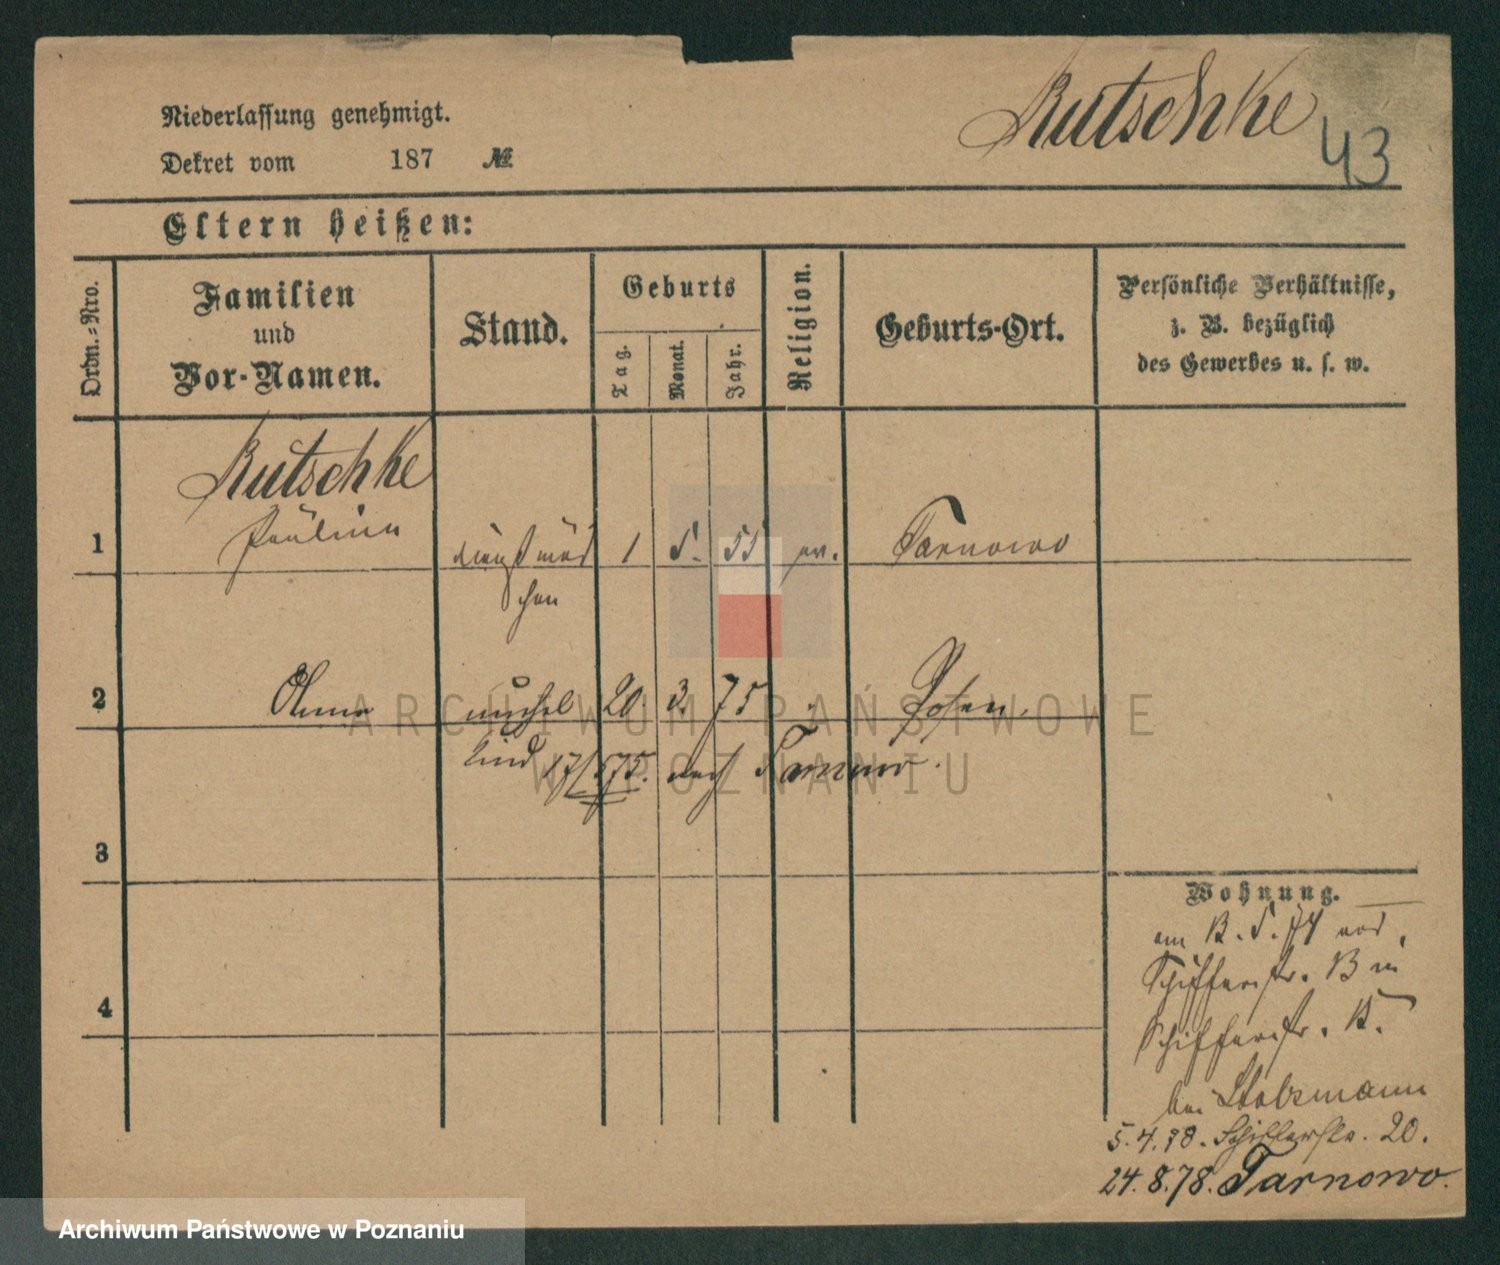 Niederlassung genehmigt.
Rutschke
43
Dekret vom 187 №
Eltern heißen:
Ordn.-Nro.
Familien und Vor-Namen.
Stand.
Geburts
Tag.
Monat.
Jahr.
Religion.
Geburts-Ort.
Persönliche Verhältnisse,
z. B. bezüglich
des Gewerbes u. s. w.
Rutschke
1 Paulina dienstmäd 1 5. 55 ev. Tarnowo
chen
2 20. 3. 75 Posen.
kind 17/5 75. nach Tarnowo.
3
Wohnung.
4
Schifferstr.
Schifferstr.
bei Stolzmann
5.4.78. Schifferstr. 20.
24.8.78. Tarnowo.
ARCHIWUM PAŃSTWOWE
W POZNANIU
Archiwum Państwowe w Poznaniu